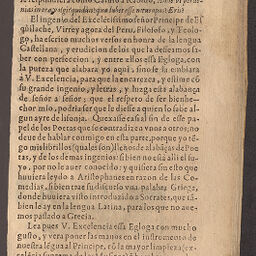 El ingenio del Excelentissimo señor Principe de Es
quilache, Virrey agora del Peru, Filosofo, y Teolo-
go, ha escrito muchos versos en honra de la lengua
Castellana, y erudicion de los que la desseamos sa-
ber con perfeccion, y entre ellos essa Egloga, con
la pureza que alabará yo aqui, sino se la embiara
à V. Excelencia, para que la encarezca, y estime cõ
su grande ingenio, y letras, y haga esta alabança
de señor a señor: que el respeto de ser bienhe-
chor mio, podria ser que le diesse a quien lo sabe al-
gun ayre de lisonja. Quexase casi al fin de esse pa
pel de los Poetas que se contradizen vnos a otros, no
deue de hablar conmigo en esta parte, porque yo tẽ-
go mis librillos (quales son) llenos de alabãças de Poe-
tas, y de los demas ingenios: si bien no està alli el su-
yo, por no le auer conocido; y quisiera sin esto que
huuiera leydo a Aristophanes en razon de las Co-
medias, si bien trae su discurso vna palabra Griega,
donde huuiera visto introducido a Socrates, que tã-
bien le ay en la lengua Latina, para los que no aue-
mos passado a Grecia.
Lea pues V. Excelencia essa Egloga con mucho
gusto, y vera poner las manos en el instrumento de
nuestra lẽgua al Principe, cõ la mayor limpieza (ex-